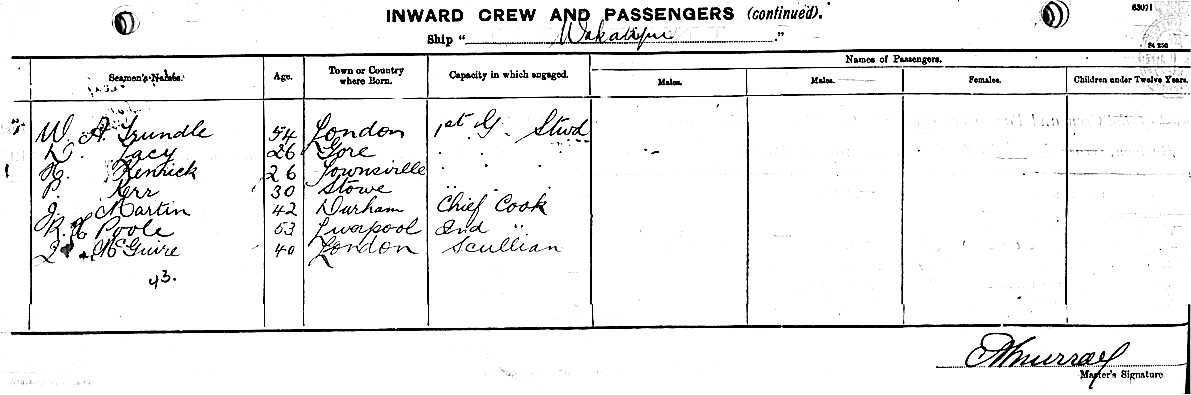 INWARD CREW AND PASSENGERS (continued).
63071
Ship "Wakatipu."
Seamen's Names. Age. Town or Country where Born. Capacity in which engaged. Names of Passengers.
Males. Males. Females. Children under Twelve Years.
W. A. Trundle 54 London 1st G. Stwd
Lacy 26 Gore " "
Kenrick 26 Townsville " "
P. Kerr 30 Stowe " "
J. Martin 42 Durham Chief Cook
R. H. Poole 53 Liverpool 2nd "
McGuire 40 London Scullian
43.
Murray
Master's Signature